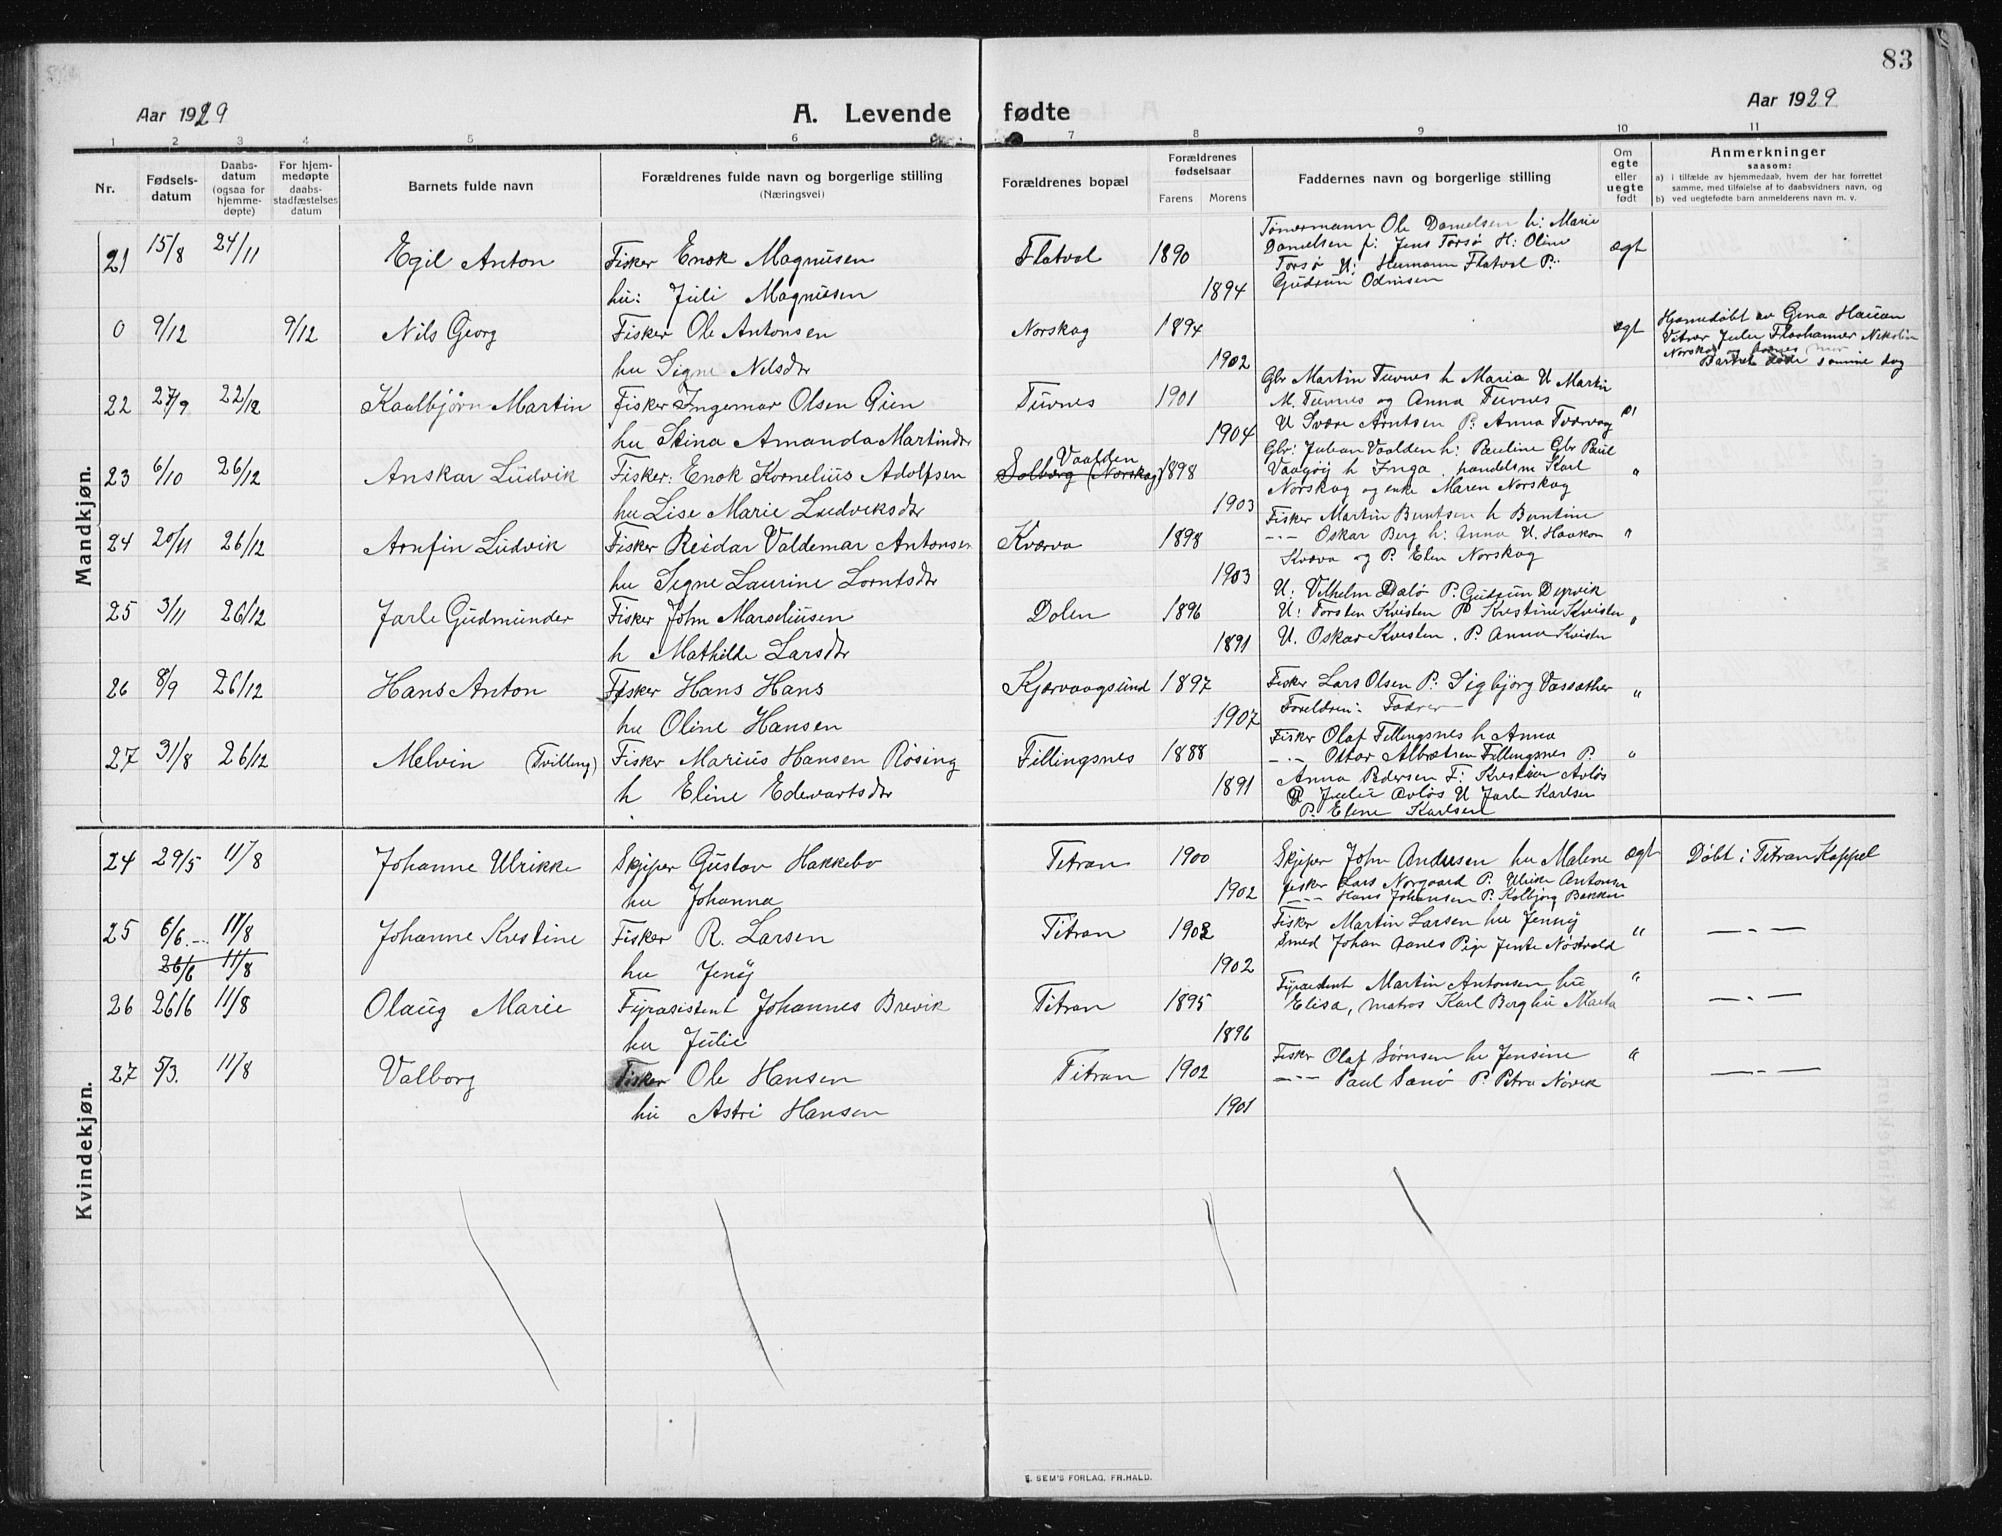 83
Aar 1929
A. Levende fødte
Aar 1929
1 2 3 4 5 6 7 8 9 10 11
Nr.
Fødsels-
datum
Daabs-
datum
(ogsaa for
hjemme-
døpte)
For hjem-
medøpte
daabs-
stadfæstelses
datum
Barnets fulde navn
Forældrenes fulde navn og borgerlige stilling
(Næringsvei)
Forældrenes bopæl
Forældrenes
fødselsaar
Farens Morens
Faddernes navn og borgerlige stilling
Om
egte
eller
uegte
født
Anmerkninger
saasom:
a) i tilfælde av hjemmedaab, hvem der har forrettet
samme, med tilføielse af to daabsvidners navn, og
b) ved uegtefødte barn anmelderens navn m. v.
Mandkjøn.
21 15/8 24/11 Egil Anton Fisker Enok Magnusen Flatval 1890 ægt
hu: Juli Magnusen 1894
Tømermann Ole Danielsen h: Marie
Danielsen f: Jens Torsø H: Oline
Torsø U: Hermann Flatval P:
Gudrun Odinsen
0 9/12 9/12 Nils Georg Fisker Ole Antonsen Norskag 1894 ægt
hu Signe Nilsdtr 1902
Hjemmedøbt av Gina
Norskag og
Barnet døde samme dag
22 27/9 22/12 Kaalbjørn Martin Fisker Ingemar Olsen Øien Tuvnes 1901 "
hu Stina Amanda Martindtr 1904
Gbr Martin Tuvnes h Maria U Martin
M. Tuvnes og Anna Tuvnes
U Sverre Arntsen P. Anna Tværvag
23 6/10 26/12 Anskar Ludvik Fisker: Enok Kornelius Adolfsen Vaalden Solberg (Norskag) 1898 "
hu Lise Marie Ludviksdtr 1903
Gbr: Johan Vaalden h: Pauline Gbr Paul
Vaagøy h Inga. handelsm Karl
Norskag og enke Maren Norskag
24 20/11 26/12 Arnfin Ludvik Fisker Reidar Valdemar Antonsen Kværva 1898 "
hu Signe Laurine Lorntsdtr 1903
Fisker Martin Berntsen h Berntine
-"- Oskar Berg h: Anna U. Haakon
Kværva og P. Elen Norskag
25 3/11 26/12 Jarle Gudmunder Fisker John Marseliusen Dolen 1896 "
h Mathilde Larsdtr 1891
U: Vilhelm Daløe P. Gudrun Dyrvik
U: Torsten Kvisten P Kristine Kvisten
U. Oskar Kvisten. P. Anna Kvisten
26 8/9 26/12 Hans Anton Fisker Hans Hans Kjærvaagsund 1897 "
hu Oline Hansen 1907
Fisker Lars Olsen P: Sigbjørg Vassæther
Foreldren:
27 31/8 26/12 Melvin (Tvilling) Fisker Marius Hansen Røsing Fillingsnes 1888 "
h Eline Edevartsdtr 1891
Fisker Olaf Fillingsnes h Anna
-"- Ottar Albertsen Fillingsnes P.
Anna Pedersen F: Kristian Avløs
P. Julie Avløs U Jarle Karlsen
P. Elene Karlsen
Kvindekjøn.
24 29/5 11/8 Johanne Ulrikke Skjiper Gustav Hakkebo Titran 1900 ægt Døbt i Titran Kappel
hu Johanna 1902
Skjiper John Andersen hu Malene
fisker Lars Norgaard P. Ulrike Antonsen
-"- Hans Johansen P. Kolbjørg Bakken
25 6/6 -"- 11/8 Johanne Kristine Fisker R. Larsen Titran 1902 " —"—
26/6 11/8 hu Jenny 1902
Fisker Martin Larsen hu Jenny
Smed Johan Aanes Pige Jente Nøstvold
26 26/6 11/8 Olaug Marie Fyrasistent Johannes Brevik Titran 1895 " —"—
hu Julie 1896
Fyrasistent Martin Antonsen hu
Elisa, matros Karl Berg hu Marta
27 5/3. 11/8 Valborg Fisker Ole Hansen Titran 1902 " —"—
hu Astri Hansen 1901
Fisker Olaf Sørnsen hu Jensine
-"- Paul Sanø P. Petra Nøvik
E. SEM'S FORLAG, FR.HALD.